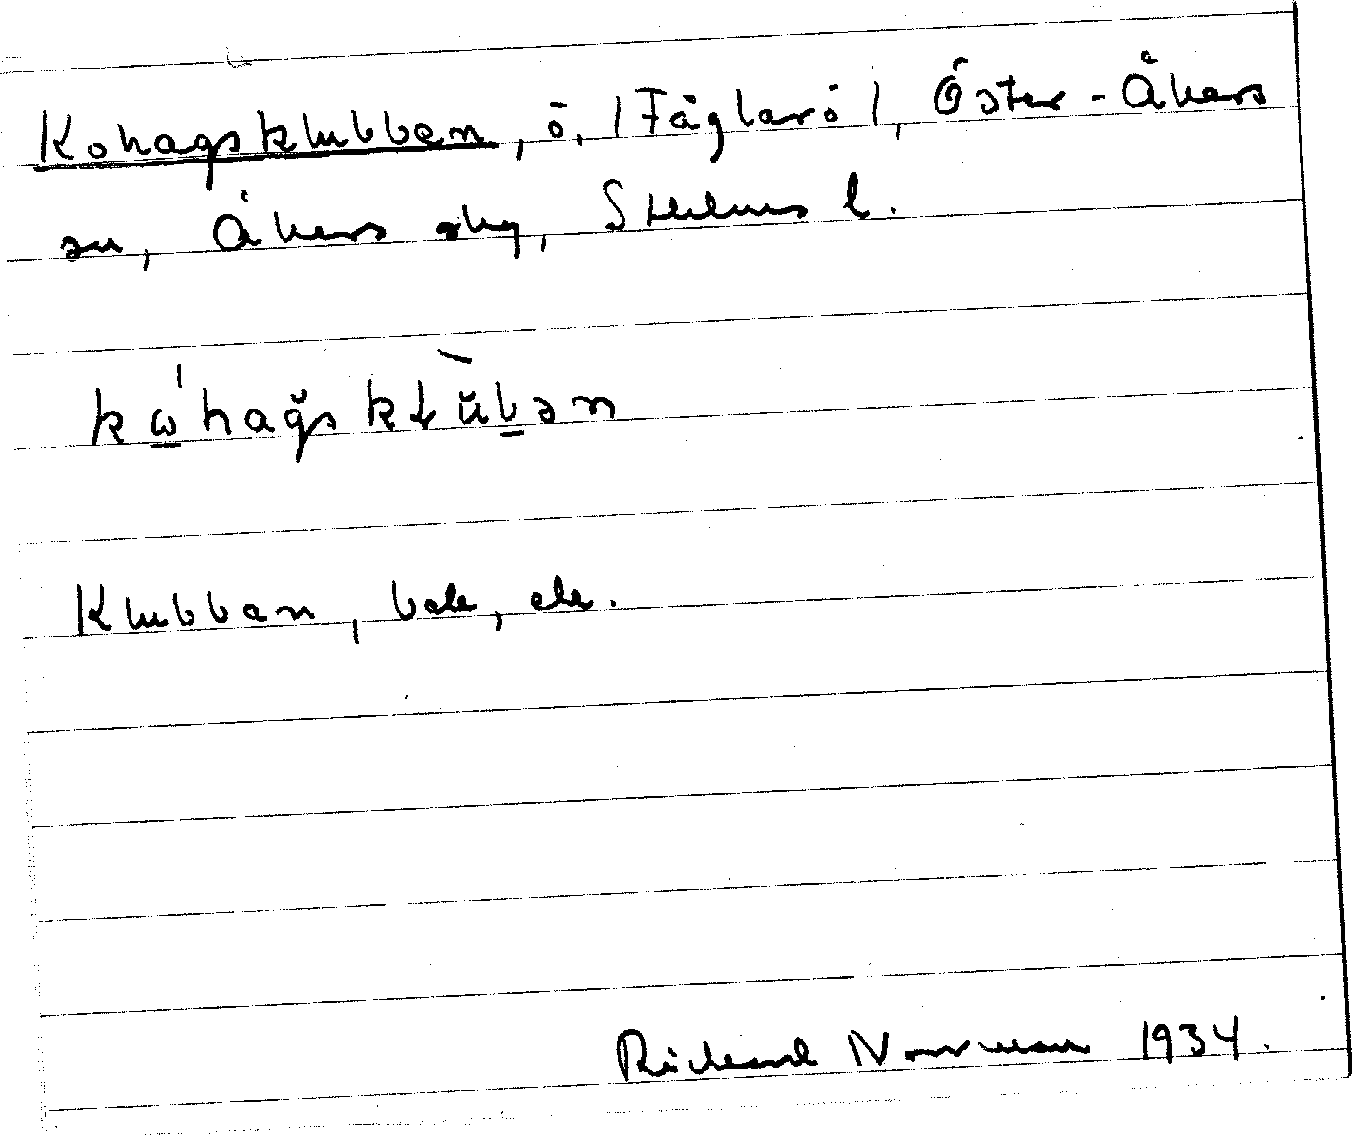 Kohagsklubben, ö, /Fåglarö/, Öster-Åkers
sn, Åkers skg, Sthlms l.
kώ̱haǧskłŭ̀ḇən
Klubban, bok, ek.
Richard Norrman 1934.